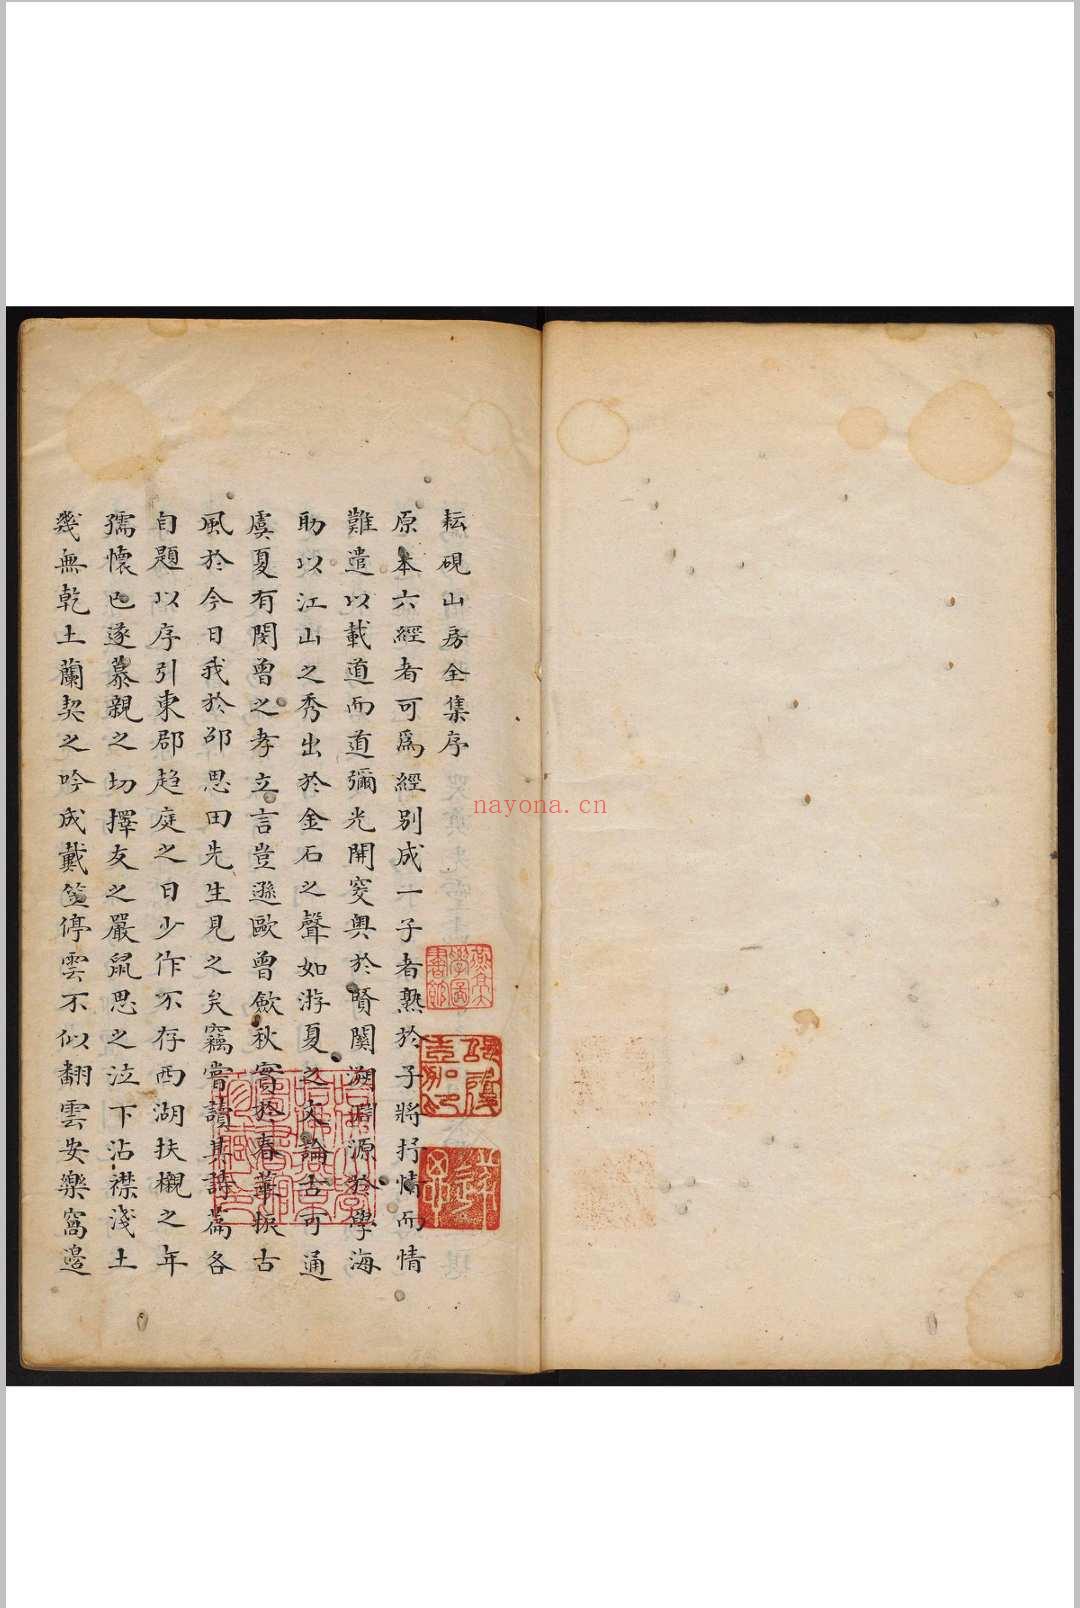 耘硯山房全集序
原本六經者可爲經別成一子者熟於子將抒情而情
難遣以載道而道彌光開窔奥於賢關溯淵源於學海
助以江山之秀出於金石之聲如游夏之文論古可通
虞夏有閔曾之孝立言豈遜歐曾歛秋實於春華振古
風於今日我於邵思田先生見之矣竊嘗讀其詩篇各
自題以序引東郡趋庭之日少作不存西湖扶櫬之年
孺懷已遂慕親之切擇友之嚴鼠思之泣下沾襟淺土
幾無乾土蘭契之吟成戴笠停雲不似翻雲安樂窩邊
燕京大學圖書館
哈佛大學哈佛燕京圖書館珍藏印
nayona.cn